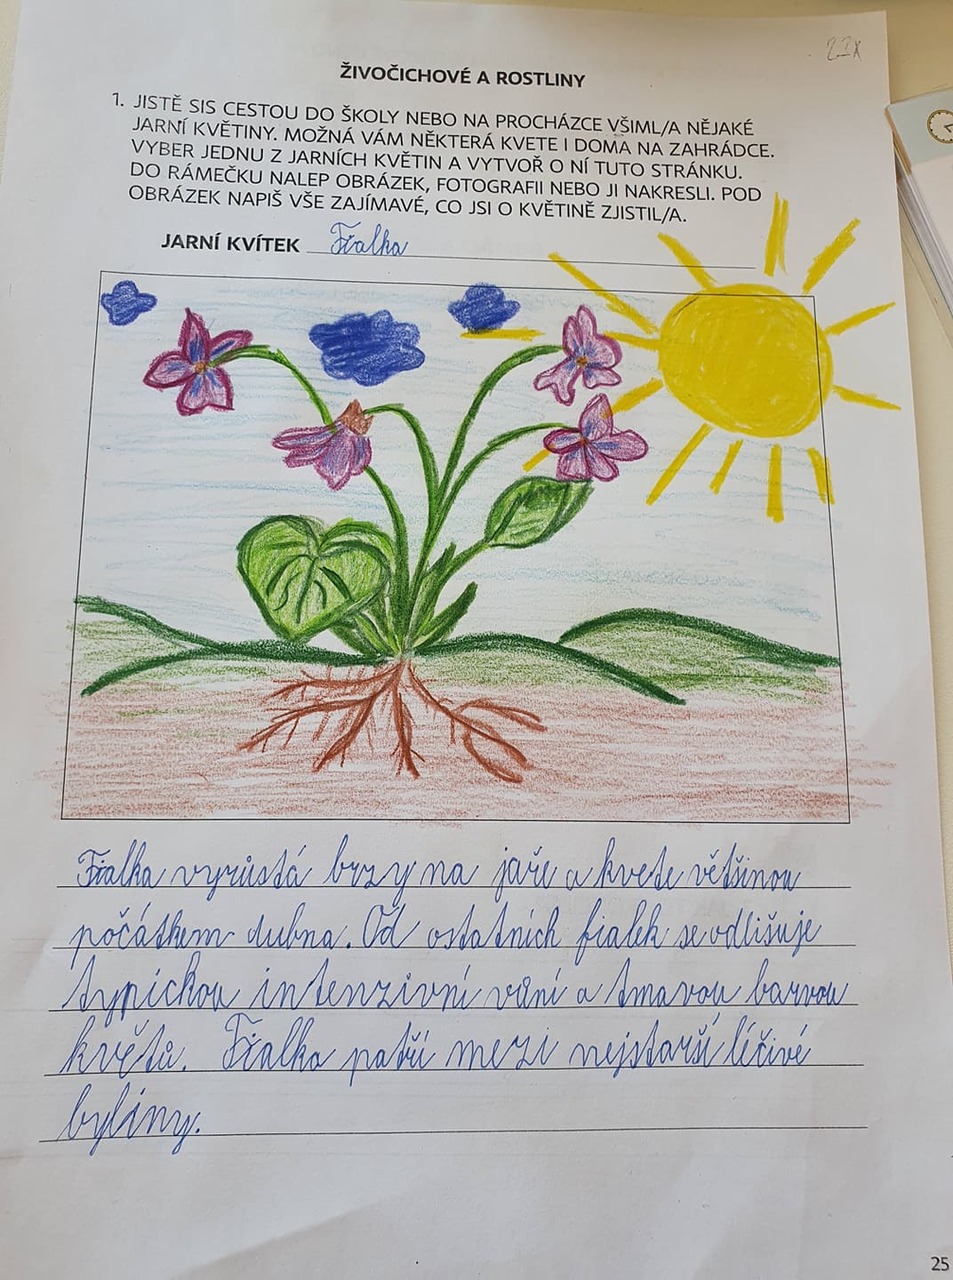 ŽIVOČICHOVÉ A ROSTLINY
1. JISTĚ SIS CESTOU DO ŠKOLY NEBO NA PROCHÁZCE VŠIML/A NĚJAKÉ
JARNÍ KVĚTINY. MOŽNÁ VÁM NĚKTERÁ KVETE I DOMA NA ZAHRÁDCE.
VYBER JEDNU Z JARNÍCH KVĚTIN A VYTVOŘ O NÍ TUTO STRÁNKU.
DO RÁMEČKU NALEP OBRÁZEK, FOTOGRAFII NEBO JI NAKRESLI. POD
OBRÁZEK NAPIŠ VŠE ZAJÍMAVÉ, CO JSI O KVĚTINĚ ZJISTIL/A.
JARNÍ KVÍTEK Fialka
Fialka vyrůstá brzy na jaře a kvete většinou
počátkem dubna. Od ostatních fialek se odlišuje
typickou intenzivní vůní a tmavou barvou
květů. Fialka patří mezi nejstarší léčivé
byliny.
25